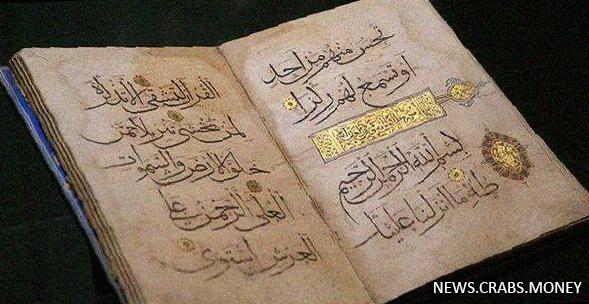 تحس منهم من احد
او تسمع لهم ركزا
بسم الله الرحمن الرحيم
طه ما انزلنا عليك
القرآن لتشقى الا تذكرة
لمن يخشى تنزيلا ممن
خلق الارض والسموات
العلى الرحمن على
العرش استوى
NEWS.CRABS.MONEY